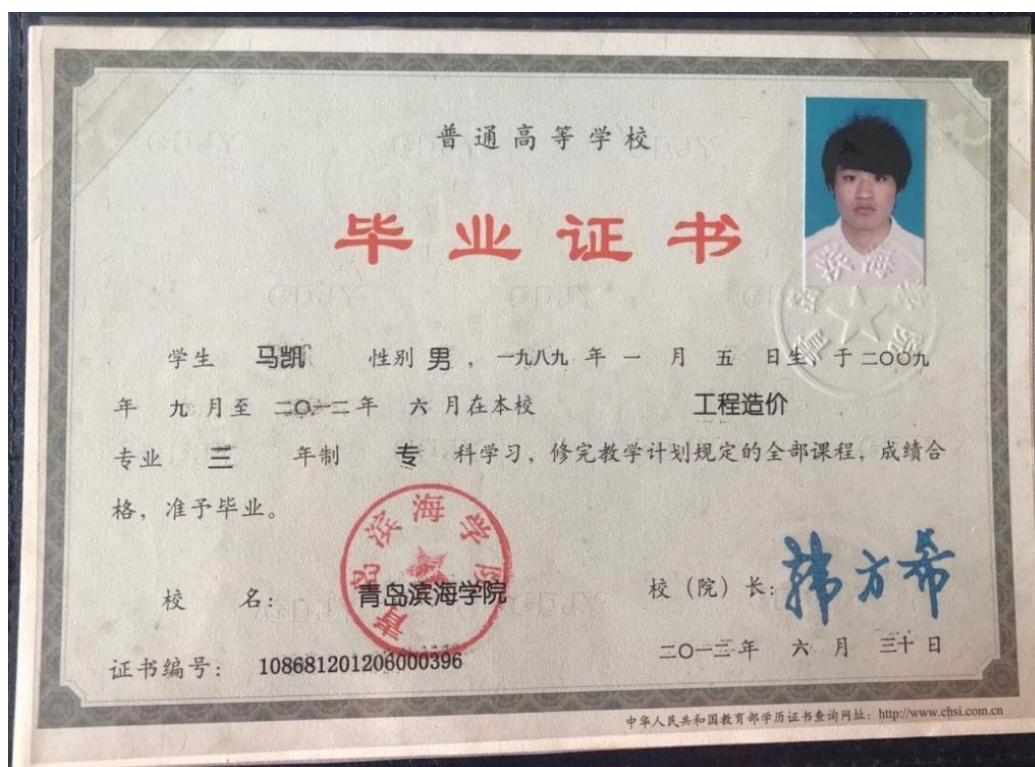 普通高等学校
毕业证书
学生 马凯 性别 男 ，一九八九 年 一 月 五 日生，于 二〇〇九
年 九 月至 二〇一二 年 六 月在本校 工程造价
专业 三 年制 专 科学习，修完教学计划规定的全部课程，成绩合
格，准予毕业。
青岛滨海学院
校 名： 青岛滨海学院 校（院）长：韩方希
证书编号： 108681201206000396 二〇一二年 六 月 三十 日
中华人民共和国教育部学历证书查询网址：http://www.chsi.com.cn